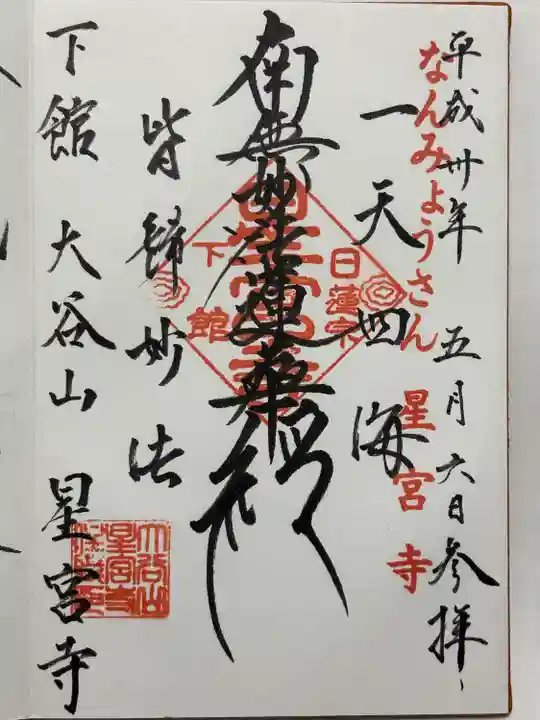 平成卅年 五月六日参拝
なんみょうさん 星宮寺
一天四海
南無妙法蓮華経
日蓮宗
下館
皆歸妙法
下館 大谷山 星宮寺